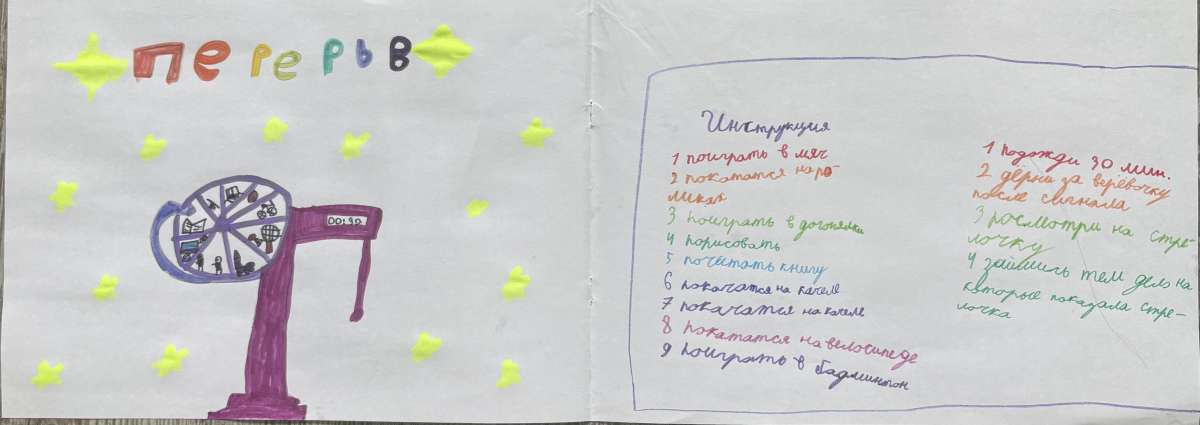 перерыв
00:30
Инструкция
1 поиграть в мяч
2 покататся на ро-
ликах
3 поиграть в догонялки
4 порисовать
5 почитать книгу
6 покачатся на качеле
7 покачатся на качеле
8 покататся на велосипеде
9 поиграть в бадминтон
1 подожди 30 мин.
2 дёрни за верёвочку
после сигнала
3 посмотри на стре-
лочку
4 займись тем дело на
которые показала стре-
лочка